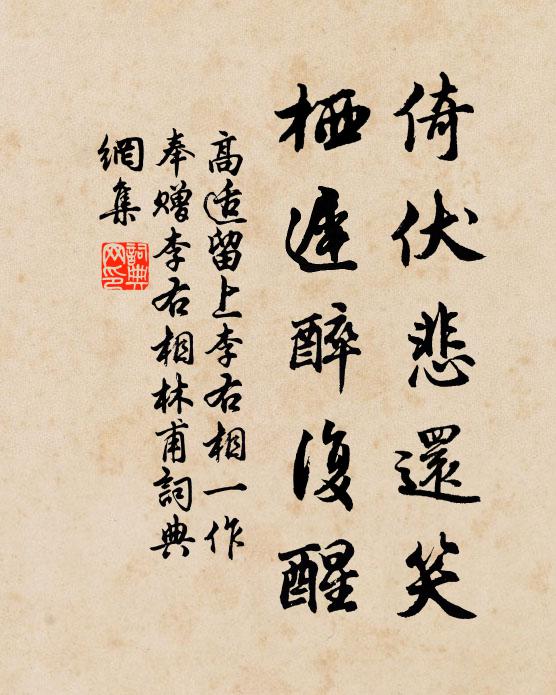 倚伏悲還笑
栖遲醉復醒
高适留上李右相一作
奉贈李右相林甫詞典
網集
詞典
网印